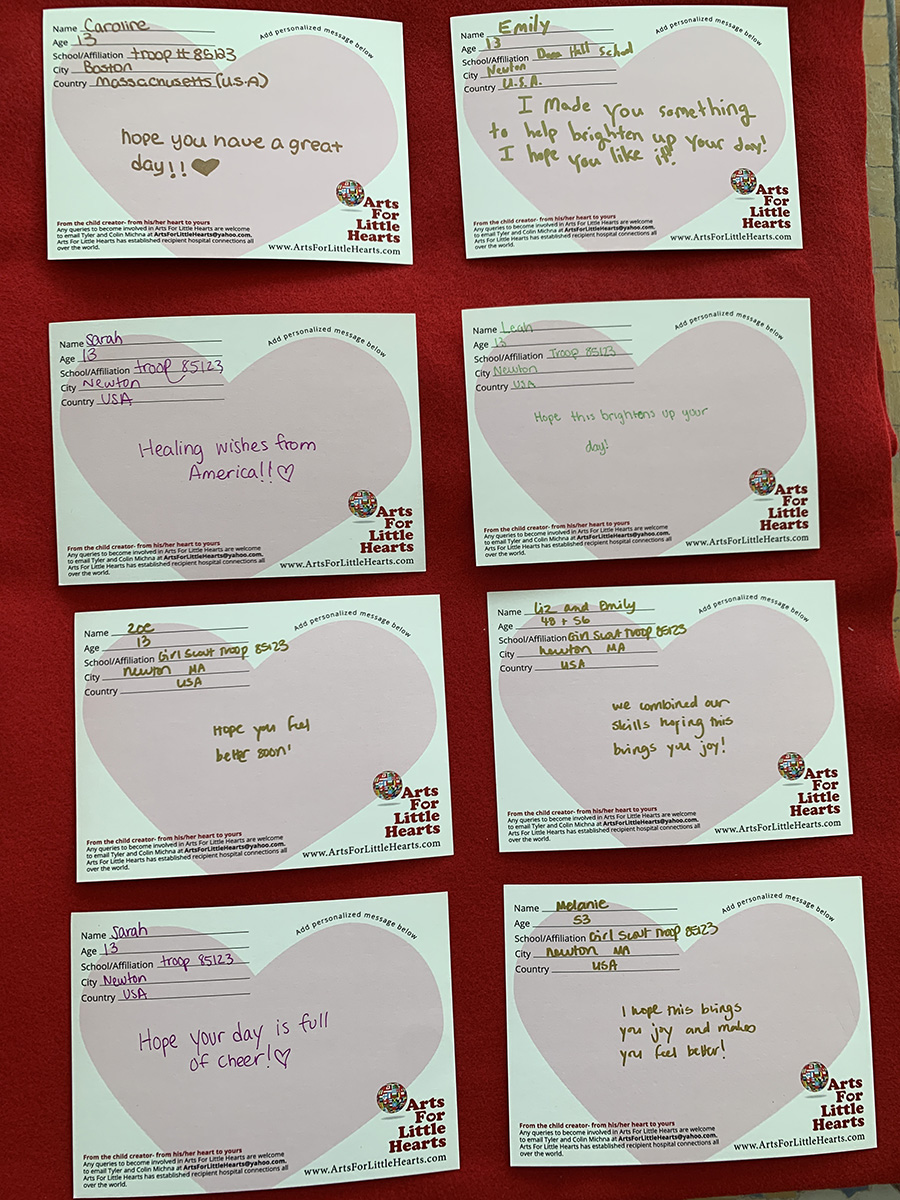 Name Caroline
Age 13
School/Affiliation troop # 85123
City Boston
Country Massachusetts (U.S.A)
Add personalized message below
hope you have a great
day!! ♥
From the child creator- from his/her heart to yours
Any queries to become involved in Arts For Little Hearts are welcome
to email Tyler and Colin Michna at ArtsForLittleHearts@yahoo.com.
Arts For Little Hearts has established recipient hospital connections all
over the world.
Arts
For
Little
Hearts
www.ArtsForLittleHearts.com
Name Emily
Age 13
School/Affiliation Dana Hall School
City Newton
Country U.S.A.
Add personalized message below
I made you something
to help brighten up your day!
I hope you like it!
From the child creator- from his/her heart to yours
Any queries to become involved in Arts For Little Hearts are welcome
to email Tyler and Colin Michna at ArtsForLittleHearts@yahoo.com.
Arts For Little Hearts has established recipient hospital connections all
over the world.
Arts
For
Little
Hearts
www.ArtsForLittleHearts.com
Name Sarah
Age 13
School/Affiliation troop 85123
City Newton
Country USA
Add personalized message below
Healing wishes from
America!! ♡
From the child creator- from his/her heart to yours
Any queries to become involved in Arts For Little Hearts are welcome
to email Tyler and Colin Michna at ArtsForLittleHearts@yahoo.com.
Arts For Little Hearts has established recipient hospital connections all
over the world.
Arts
For
Little
Hearts
www.ArtsForLittleHearts.com
Name Leah
Age 13
School/Affiliation Troop 85123
City Newton
Country USA
Add personalized message below
Hope this brightens up your
day!
From the child creator- from his/her heart to yours
Any queries to become involved in Arts For Little Hearts are welcome
to email Tyler and Colin Michna at ArtsForLittleHearts@yahoo.com.
Arts For Little Hearts has established recipient hospital connections all
over the world.
Arts
For
Little
Hearts
www.ArtsForLittleHearts.com
Name Zoe
Age 13
School/Affiliation Girl Scout Troop 85123
City Newton MA
Country USA
Add personalized message below
Hope you feel
better soon!
From the child creator- from his/her heart to yours
Any queries to become involved in Arts For Little Hearts are welcome
to email Tyler and Colin Michna at ArtsForLittleHearts@yahoo.com.
Arts For Little Hearts has established recipient hospital connections all
over the world.
Arts
For
Little
Hearts
www.ArtsForLittleHearts.com
Name Liz and Emily
Age 48 + 56
School/Affiliation Girl Scout Troop 85123
City Newton MA
Country USA
Add personalized message below
we combined our
skills hoping this
brings you joy!
From the child creator- from his/her heart to yours
Any queries to become involved in Arts For Little Hearts are welcome
to email Tyler and Colin Michna at ArtsForLittleHearts@yahoo.com.
Arts For Little Hearts has established recipient hospital connections all
over the world.
Arts
For
Little
Hearts
www.ArtsForLittleHearts.com
Name Sarah
Age 13
School/Affiliation troop 85123
City Newton
Country USA
Add personalized message below
Hope your day is full
of cheer! ♡
From the child creator- from his/her heart to yours
Any queries to become involved in Arts For Little Hearts are welcome
to email Tyler and Colin Michna at ArtsForLittleHearts@yahoo.com.
Arts For Little Hearts has established recipient hospital connections all
over the world.
Arts
For
Little
Hearts
www.ArtsForLittleHearts.com
Name Melanie
Age 53
School/Affiliation Girl Scout Troop 85123
City Newton MA
Country USA
Add personalized message below
I hope this brings
you joy and makes
you feel better!
From the child creator- from his/her heart to yours
Any queries to become involved in Arts For Little Hearts are welcome
to email Tyler and Colin Michna at ArtsForLittleHearts@yahoo.com.
Arts For Little Hearts has established recipient hospital connections all
over the world.
Arts
For
Little
Hearts
www.ArtsForLittleHearts.com